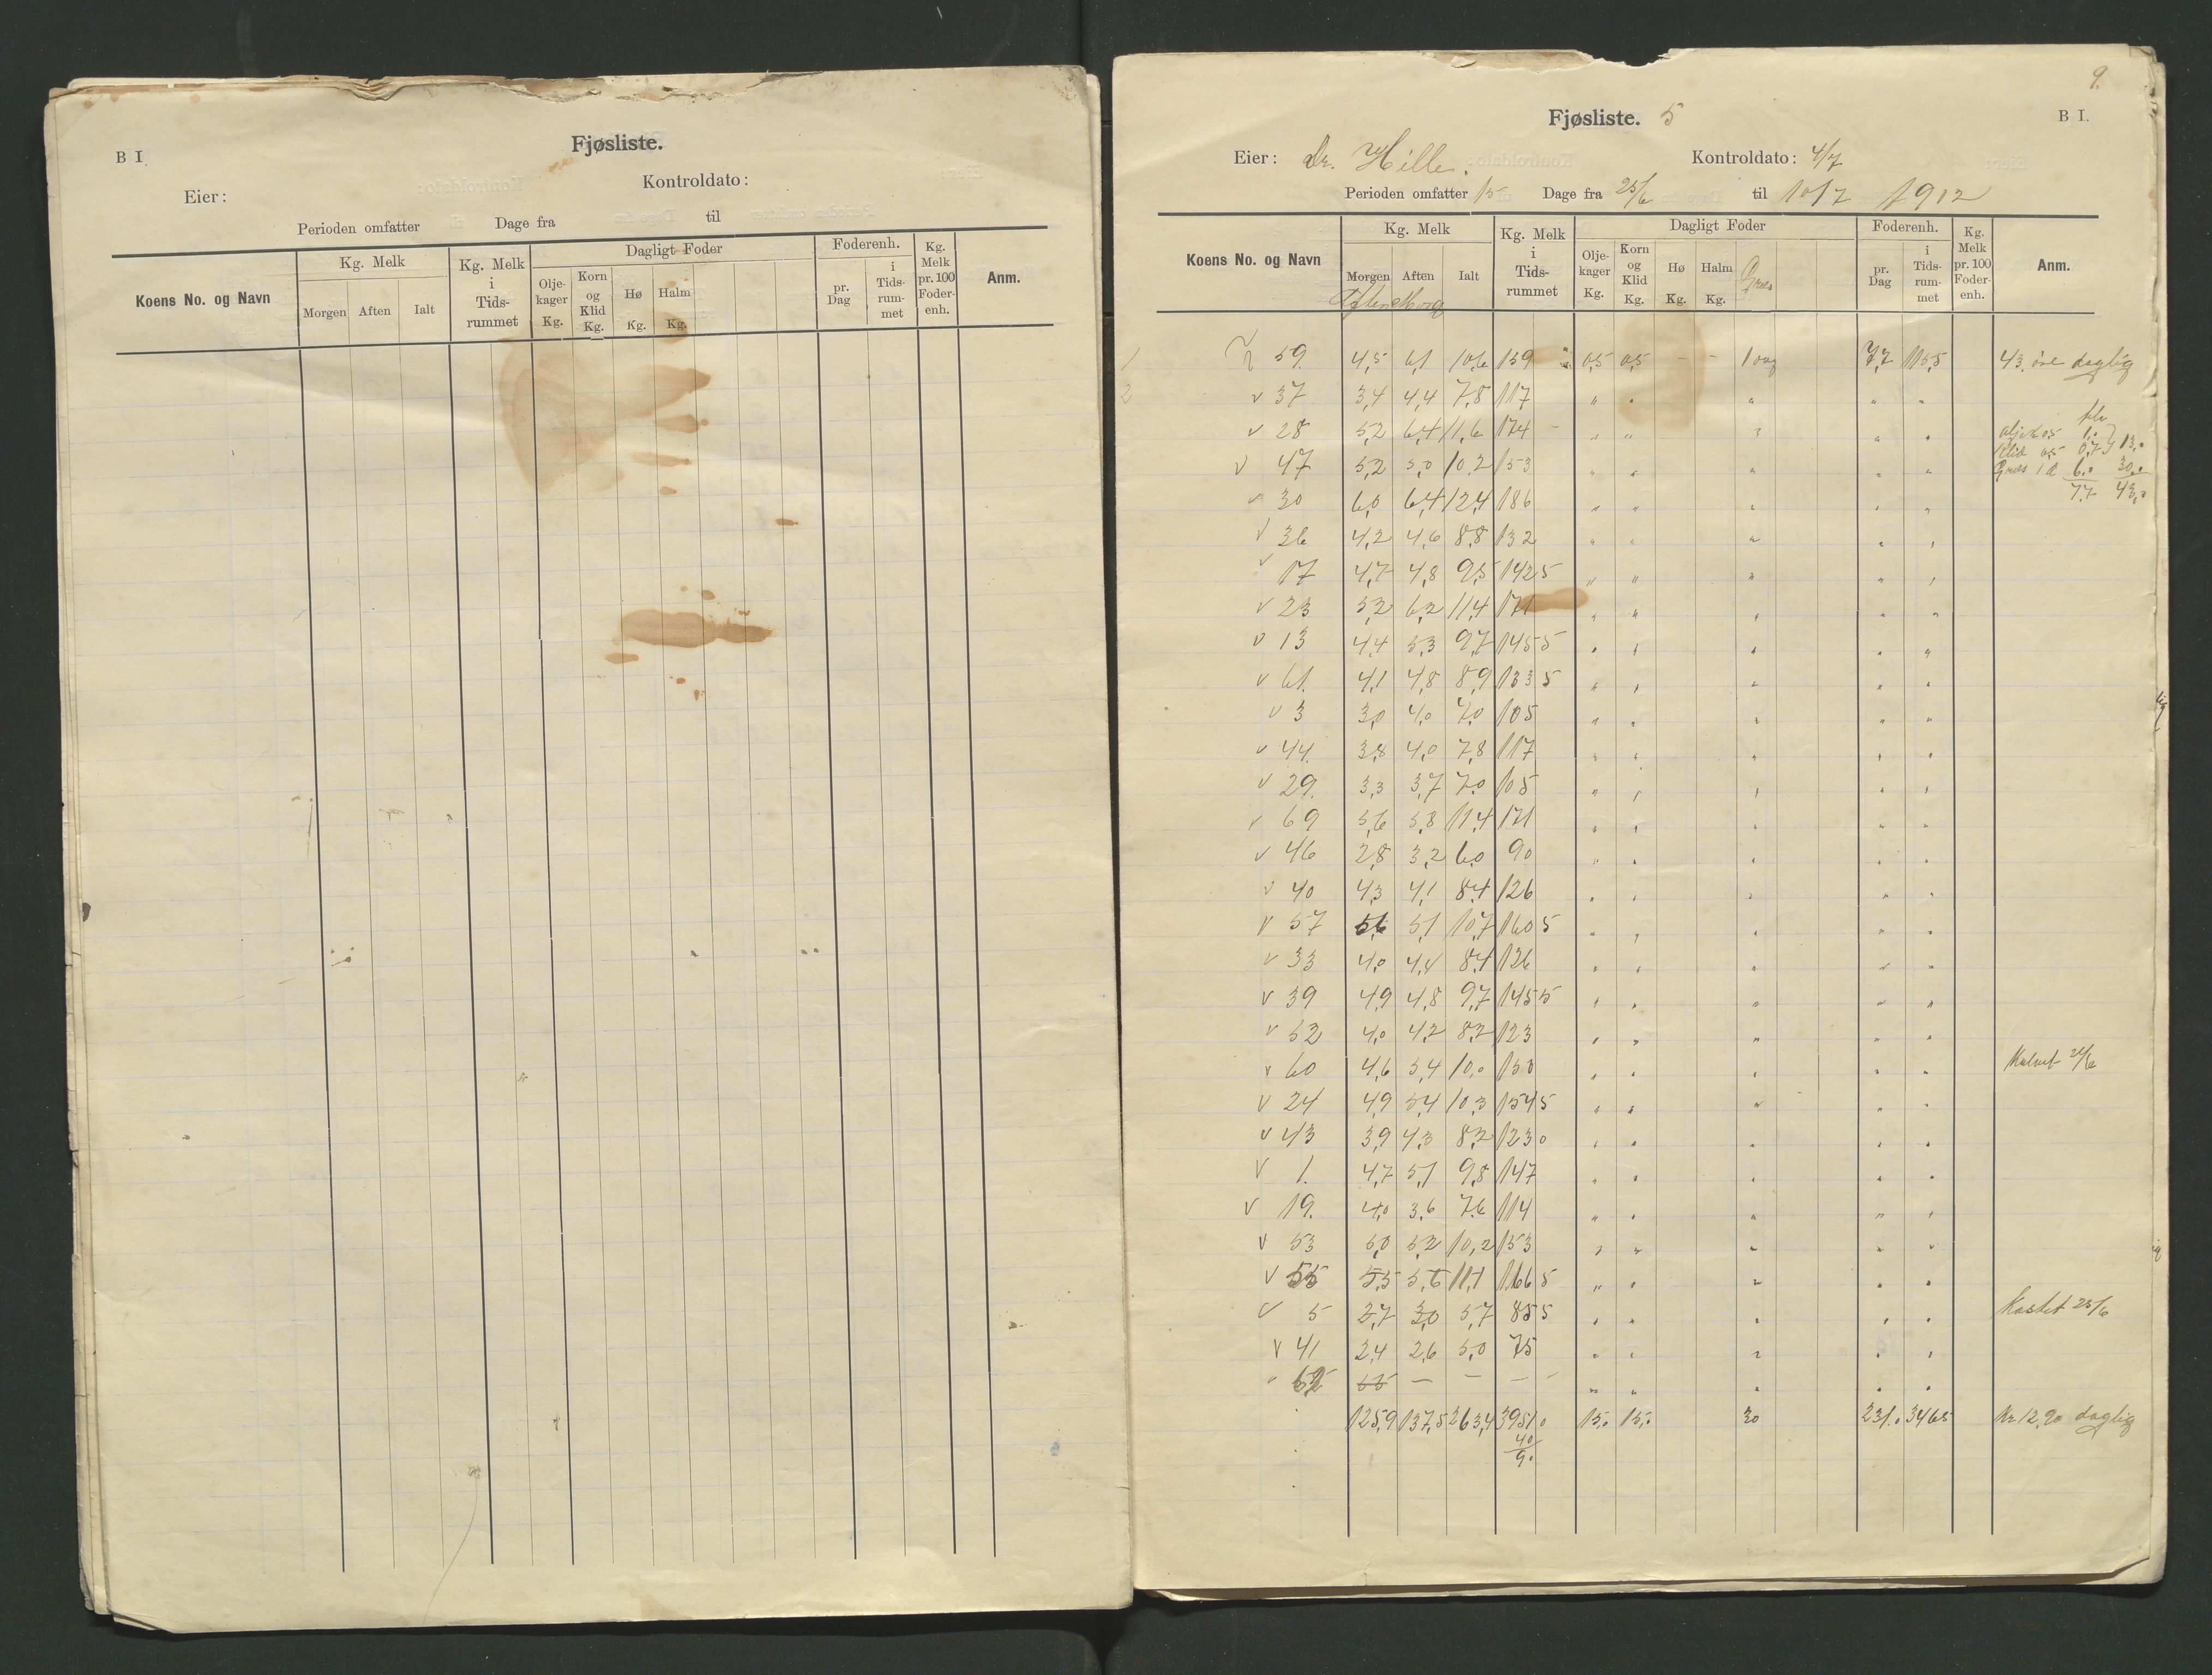 B I.
Fjøsliste.
Eier:
Kontroldato:
Perioden omfatter Dage fra til
Koens No. og Navn
Kg. Melk
Morgen Aften Ialt
Kg. Melk i Tids- rummet
Dagligt Foder
Olje- kager Kg.
Korn og Klid Kg.
Hø Kg.
Halm Kg.
Foderenh.
pr. Dag
i Tids- rum- met
Kg. Melk pr. 100 Foder- enh.
Anm.
9.
Fjøsliste. 5
B I.
Eier: Dr. Hille. Kontroldato: 4/7
Perioden omfatter 15 Dage fra 25/6 til 10/7 1912
Koens No. og Navn
Kg. Melk
Morgen Aften Ialt
Kg. Melk i Tids- rummet
Dagligt Foder
Olje- kager Kg.
Korn og Klid Kg.
Hø Kg.
Halm Kg.
Græs
Foderenh.
pr. Dag
i Tids- rum- met
Kg. Melk pr. 100 Foder- enh.
Anm.
Aften Morg
1 59. 4,5 6,1 10,6 159 0,5 0,5 - - 1 7,7 115,5 43 øre daglig
2 v 37 3,4 4,4 7,8 117 " " " " "
v 28 5,2 6,4 11,6 174 - " " " " "
v 47 5,2 5,0 10,2 153 " " " " "
Klid 0,5 0,7 13,0
Græs 1 6,0 30,0
7,7 43,0
v 30 6,0 6,4 12,4 186 " " " " "
v 36 4,2 4,6 8,8 132 " " " " "
v 17 4,7 4,8 9,5 142 5 " " " " "
v 23 5,2 6,2 11,4 171 " " " " "
v 13 4,4 5,3 9,7 145 5 " " " " "
v 61. 4,1 4,8 8,9 133 5 " " " " "
v 3 3,0 4,0 7,0 105 " " " " "
v 44. 3,8 4,0 7,8 117 " " " " "
v 29. 3,3 3,7 7,0 105 " " " " "
v 69 5,6 5,8 11,4 171 " " " " "
v 46 2,8 3,2 6,0 90 " " " " "
v 40 4,3 4,1 8,4 126 " " " " "
v 57 5,6 5,1 10,7 160 5 " " " " "
v 33 4,0 4,4 8,4 126 " " " " "
v 39 4,9 4,8 9,7 145 5 " " " " "
v 52 4,0 4,2 8,2 123 " " " " "
v 60 4,6 5,4 10,0 150 " " " " " Kalvet 24/6
v 24 4,9 5,4 10,3 154 5 " " " " "
v 43 3,9 4,3 8,2 123 0 " " " " "
v 1. 4,7 5,1 9,8 147 " " " " "
v 19. 4,0 3,6 7,6 114 " " " " "
v 53 5,0 5,2 10,2 153 " " " " "
v 55 5,5 5,6 11,1 166 5 " " " " "
v 5 2,7 3,0 5,7 85 5 " " " " " Kastet 25/6
v 41 2,4 2,6 5,0 75 " " " " "
- - - - " " " " "
125,9 137,5 263,4 3951 0 15,0 15,0 30 231,0 3465 Kr 12,90 daglig
40
9.